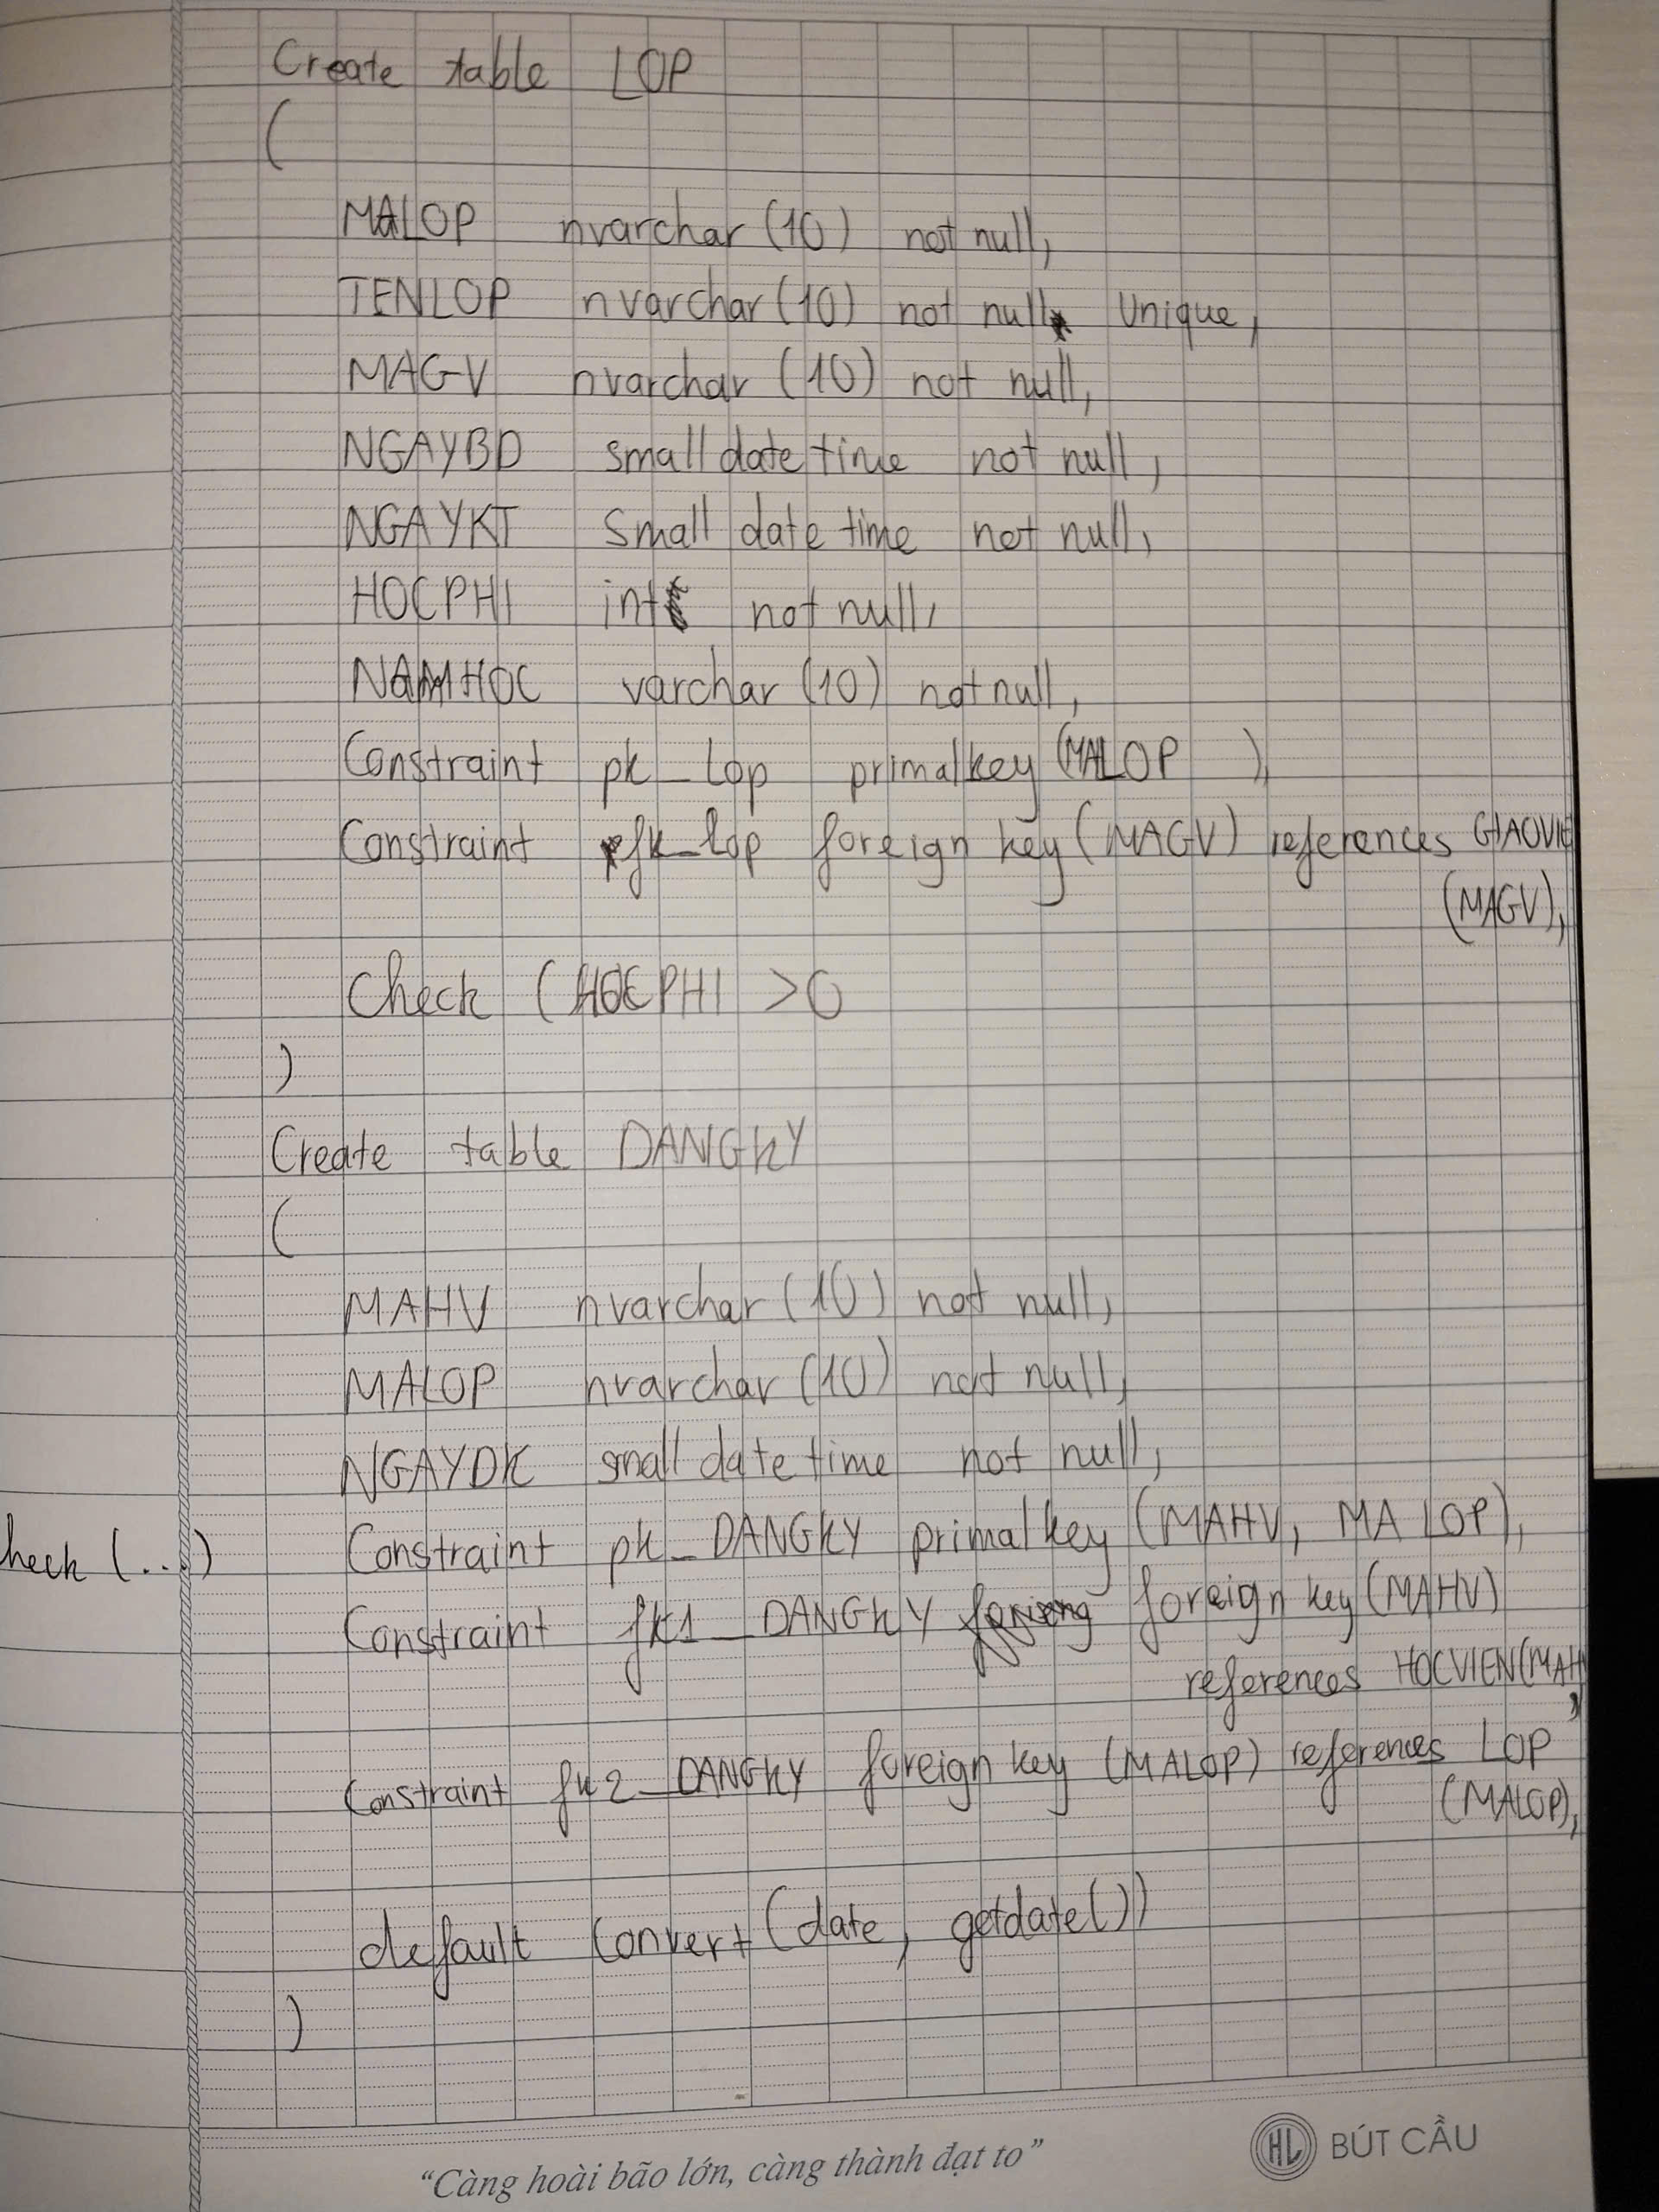 Create table LOP
(
MALOP nvarchar (10) not null,
TENLOP nvarchar (10) not null Unique,
MAGV nvarchar (10) not null,
NGAYBD smalldatetime not null,
NGAYKT Smalldatetime not null,
HOCPHI int not null,
NAMHOC varchar (10) not null,
Constraint pk_lop primalkey (MALOP ),
Constraint fk_lop foreign key (MAGV) references GIAOVIE
(MAGV),
Check (HOCPHI >0
)
Create table DANGKY
(
MAHV nvarchar (10) not null,
MALOP nvarchar (10) not null,
NGAYDK smalldatetime not null,
heck (...) Constraint pk_DANGKY primalkey (MAHV, MALOP),
Constraint fk1_DANGKY foreign key (MAHV)
references HOCVIEN(MAH
),
Constraint fk2_DANGKY foreign key (MALOP) references LOP
(MALOP),
default Convert (date, getdate())
)
"Càng hoài bão lớn, càng thành đạt to"
HL BÚT CẦU